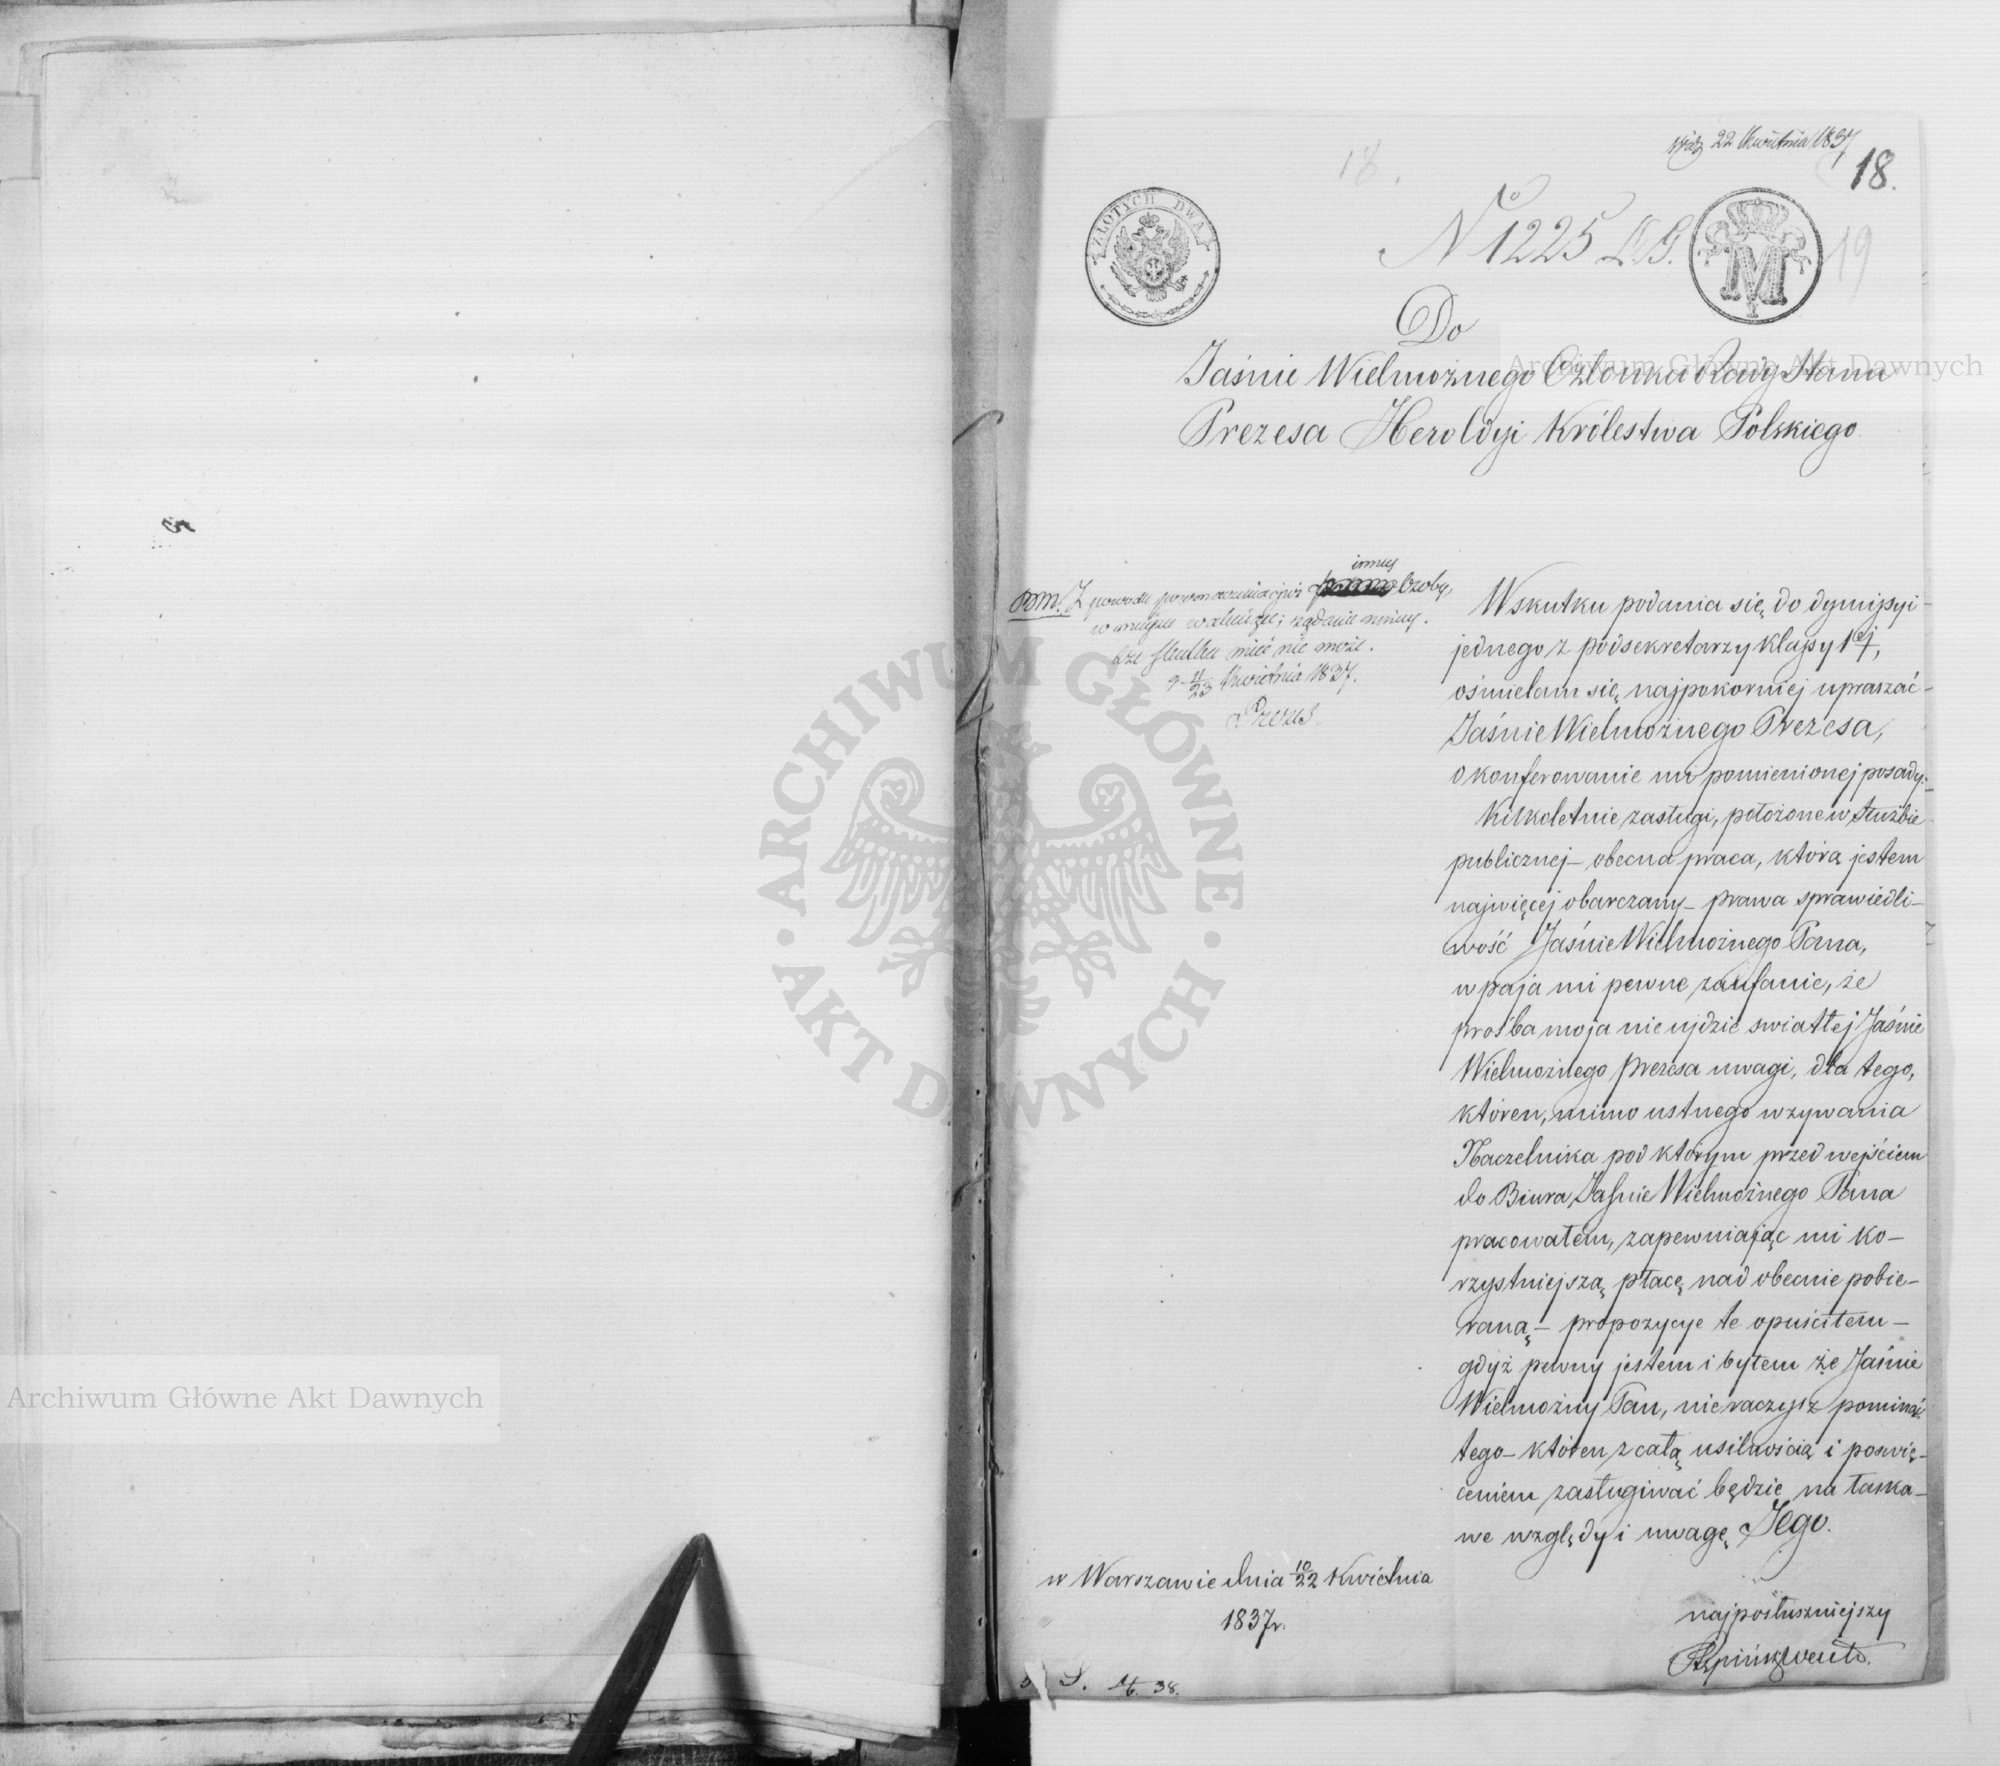 22 Kwietnia 1837
18.
18.
ZŁOTYCH DWA
N° 1225
M
19
Do
Jaśnie Wielmożnego Członka Rady Stanu
Prezesa Heroldyi Królestwa Polskiego
innej
Z powodu przeznaczenia już Osoby,
w miejsce żądanie
bez skutku mieć nie może.
11/23 Kwietnia 1837.
Prezes
Wskutku podania się do dymissyi
jednego z podsekretarzy klassy 1ej,
ośmielam się najpokorniej upraszać
Jaśnie Wielmożnego Prezesa,
o konferowanie mi pomienionej posady.
Kilkoletnie zasługi, położone w służbie
publicznej – obecna praca, którą jestem
najwięcej obarczany – prawa sprawiedli-
wość Jaśnie Wielmożnego Pana,
wpaja mi pewne zaufanie, że
prośba moja nie ujdzie swiatłej Jaśnie
Wielmożnego Prezesa uwagi, dla tego,
któren, mimo ustnego wzywania
Naczelnika pod którym przed wejściem
do Biura Jaśnie Wielmożnego Pana
pracowałem, zapewniając mi ko-
rzystniejszą płacę nad obecnie pobie-
raną – propozycje te opuściłem –
gdyż pewny jestem i byłem że Jaśnie
Wielmożny Pan, nie raczysz pominąć
tego – któren z całą usilnością i poswię-
ceniem zasługiwać będzie na łaska-
we względy i uwagę Jego.
w Warszawie dnia 10/22 Kwietnia
1837 r.
najposłuszniejszy
38.
Archiwum Główne Akt Dawnych
Archiwum Główne Akt Dawnych
ARCHIWUM GŁÓWNE · AKT DAWNYCH ·